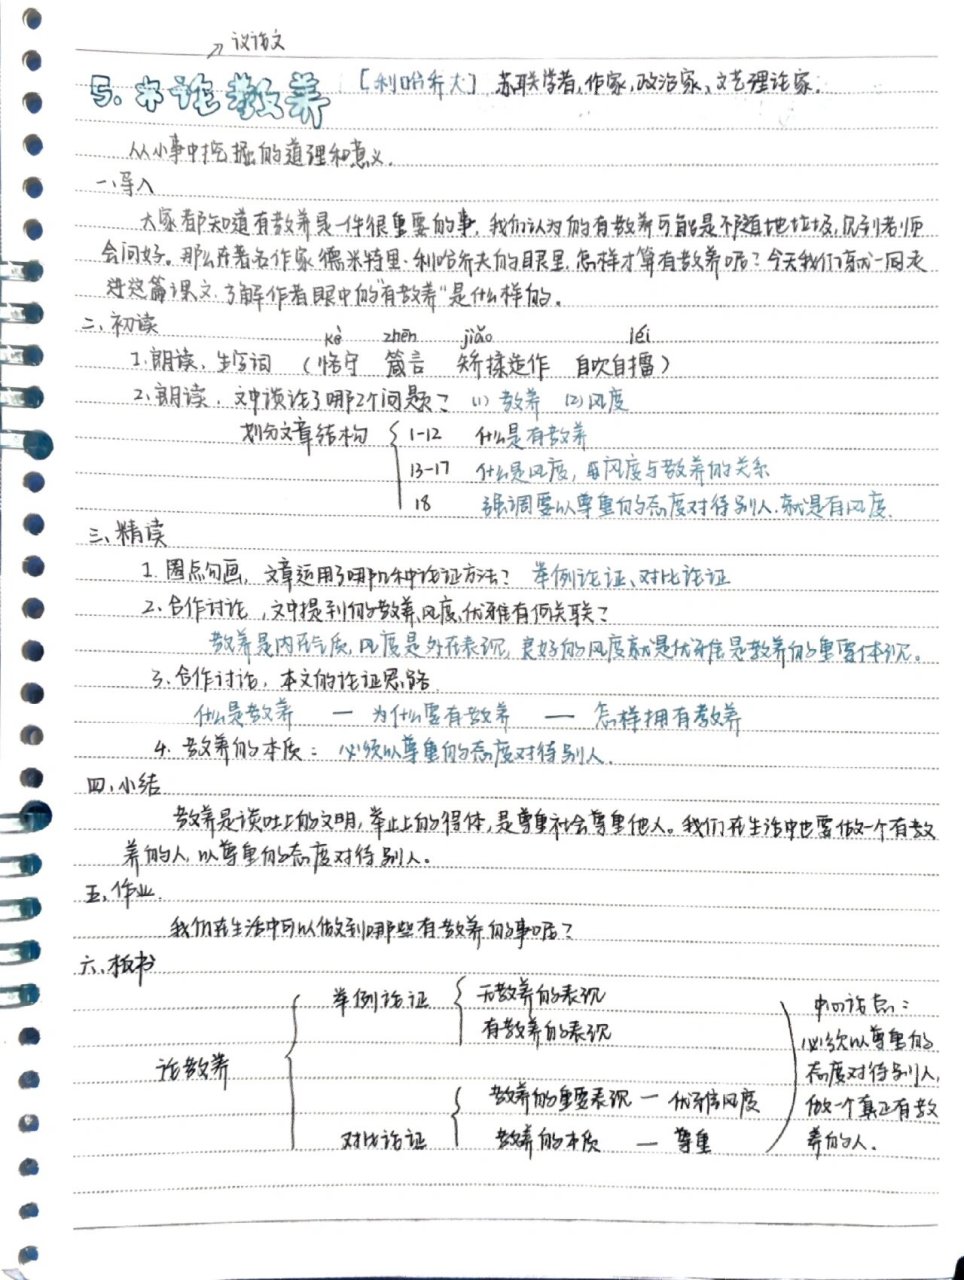 议论文
5.*论教养 [利哈乔夫] 苏联学者,作家,政治家、文艺理论家.
从小事中挖掘的道理和意义.
一、导入
大家都知道有教养是一件很重要的事,我们认为的有教养可能是不随地垃圾,见到老师
会问好。那么在著名作家德米特里·利哈乔夫的眼里,怎样才算有教养呢?今天我们就一同走
进这篇课文,了解作者眼中的"有教养"是什么样的。
二、初读
kè zhēn jiǎo léi
1.朗读、生字词 (恪守 箴言 矫揉造作 自吹自擂)
2.朗读,文中谈论了哪2个问题? (1) 教养 (2)风度
划分文章结构 { 1-12 什么是有教养
13-17 什么是风度,与风度与教养的关系
18 强调要以尊重的态度对待别人.就是有风度.
三、精读
1.圈点勾画,文章运用了哪几种论证方法? 举例论证、对比论证
2.合作讨论,文中提到的教养,风度,优雅有何关联?
教养是内在气质,风度是外在表现,良好的风度就是优雅是教养的重要体现。
3.合作讨论,本文的论证思路.
什么是教养 — 为什么要有教养 — 怎样拥有教养
4.教养的本质: 必须以尊重的态度对待别人.
四、小结
教养是谈吐上的文明,举止上的得体,是尊重社会尊重他人。我们在生活中也要做一个有教
养的人,以尊重的态度对待别人。
五、作业.
我们在生活中可以做到哪些有教养的事呢?
六、板书
论教养
举例论证 { 无教养的表现
有教养的表现
对比论证 { 教养的重要表现 — 优雅风度
教养的本质 — 尊重
中心论点:
必须以尊重的
态度对待别人,
做一个真正有教
养的人.